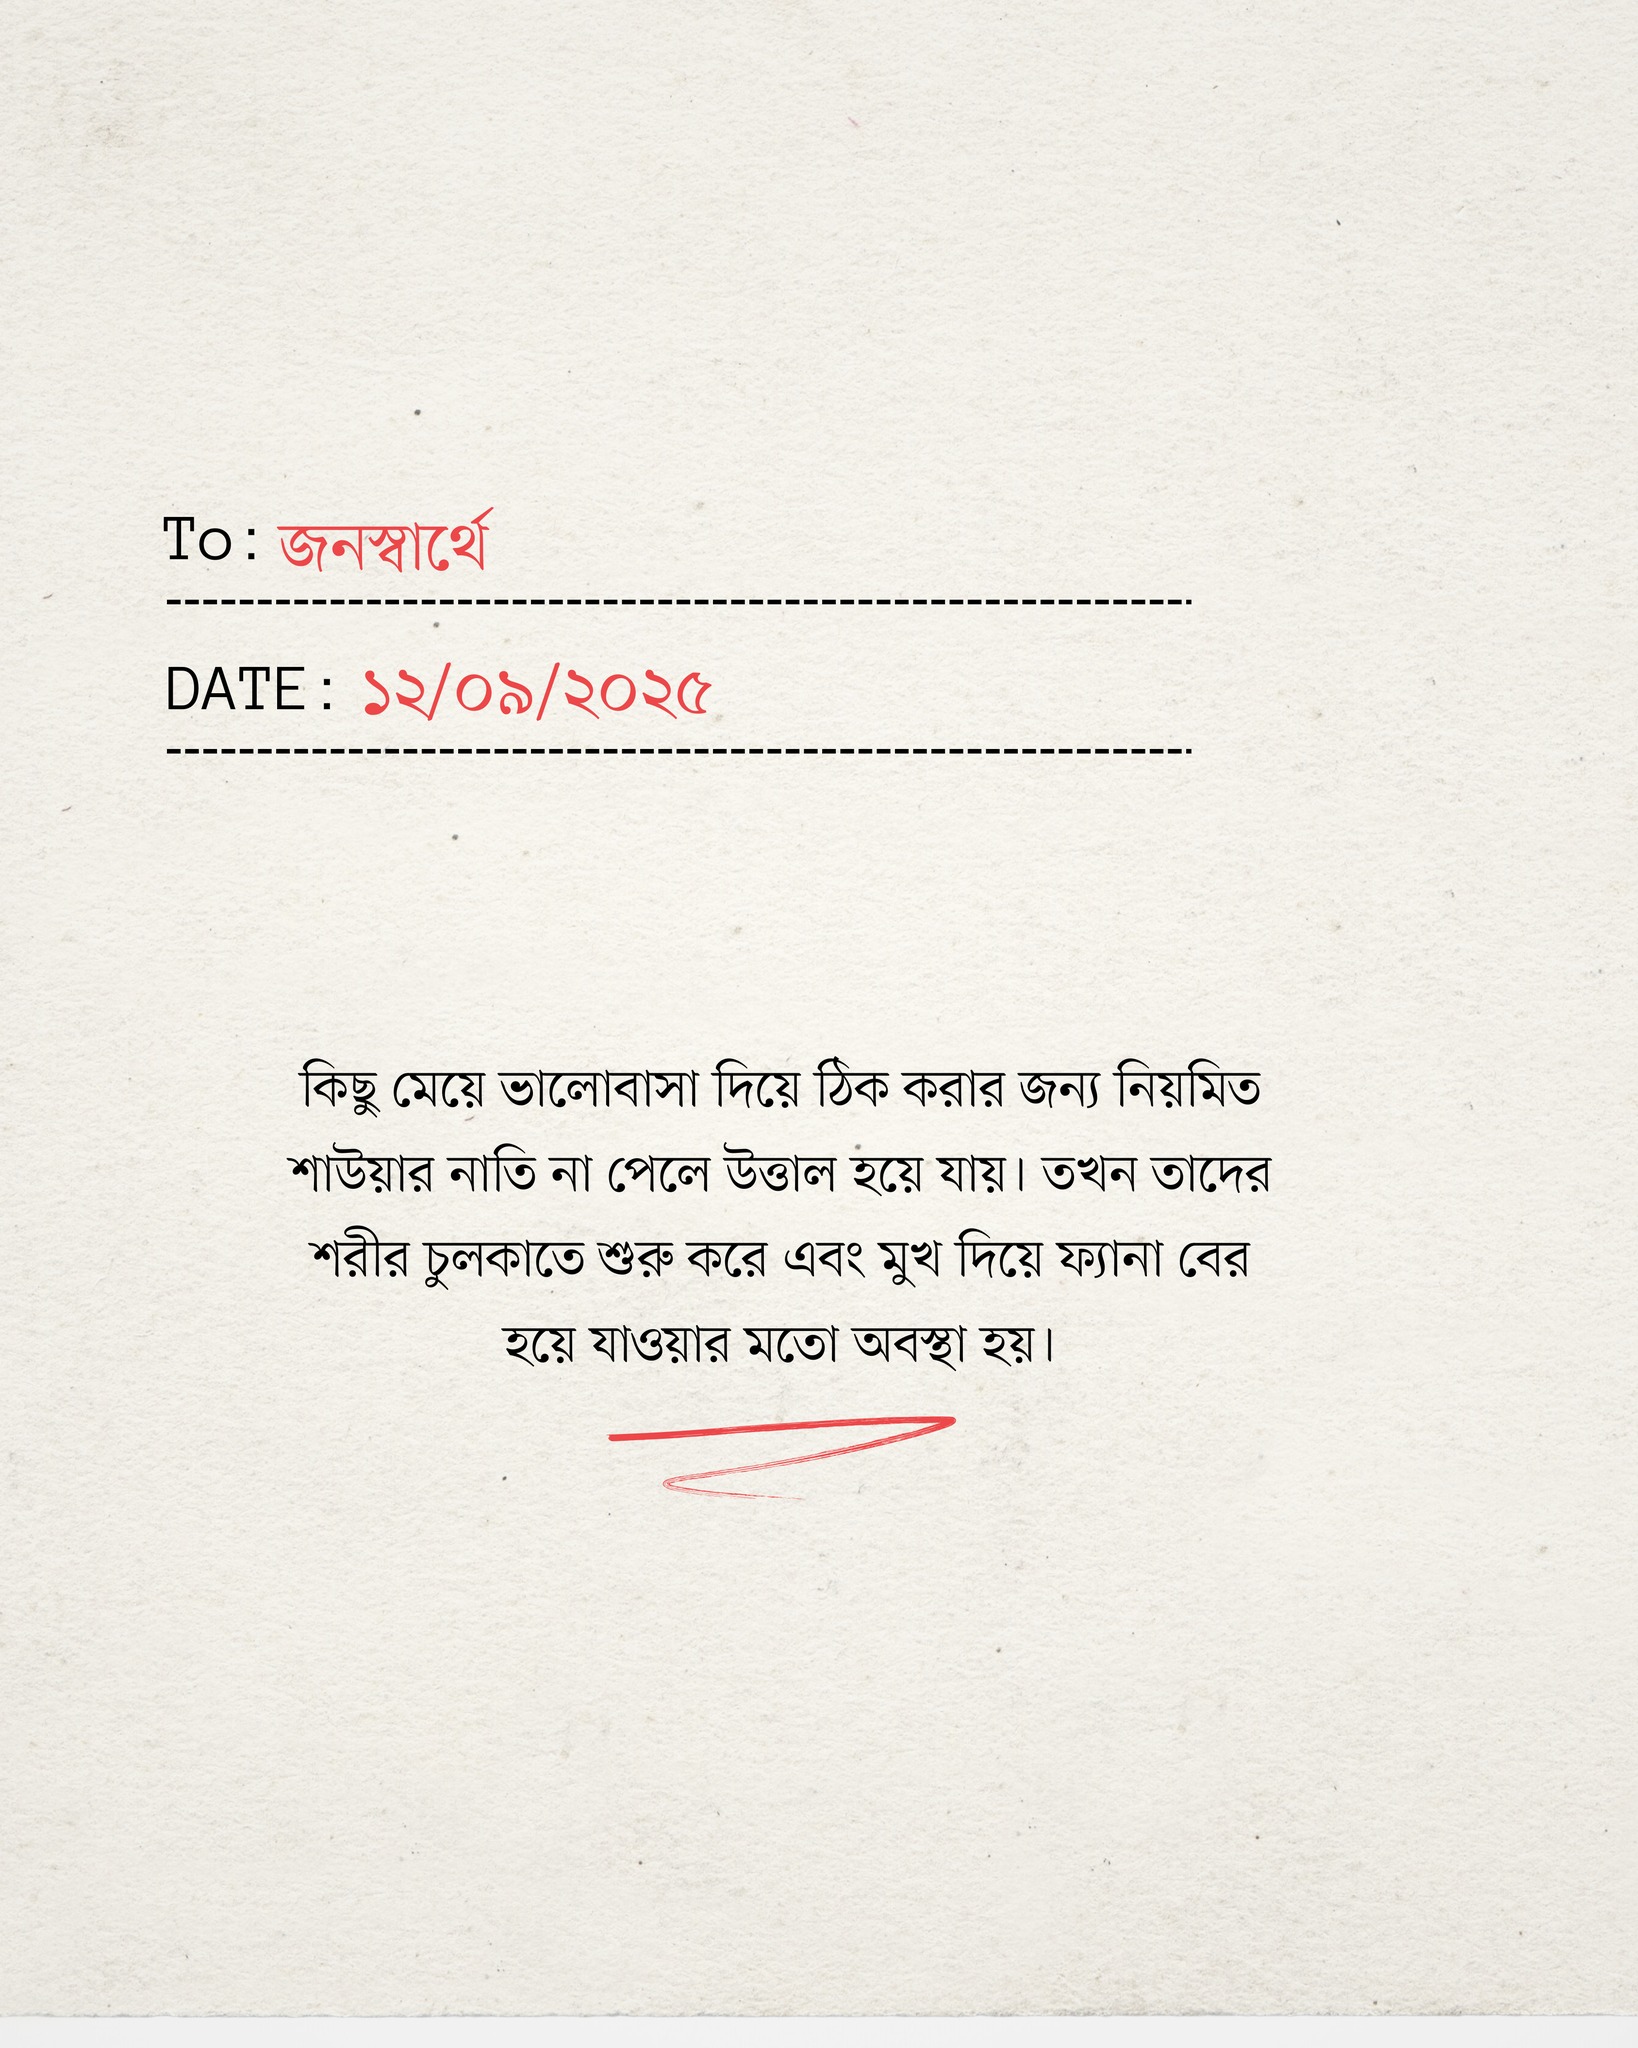 To: জনস্বার্থে
DATE: ১২/০৯/২০২৫
কিছু মেয়ে ভালোবাসা দিয়ে ঠিক করার জন্য নিয়মিত
শাউয়ার নাতি না পেলে উত্তাল হয়ে যায়। তখন তাদের
শরীর চুলকাতে শুরু করে এবং মুখ দিয়ে ফ্যানা বের
হয়ে যাওয়ার মতো অবস্থা হয়।